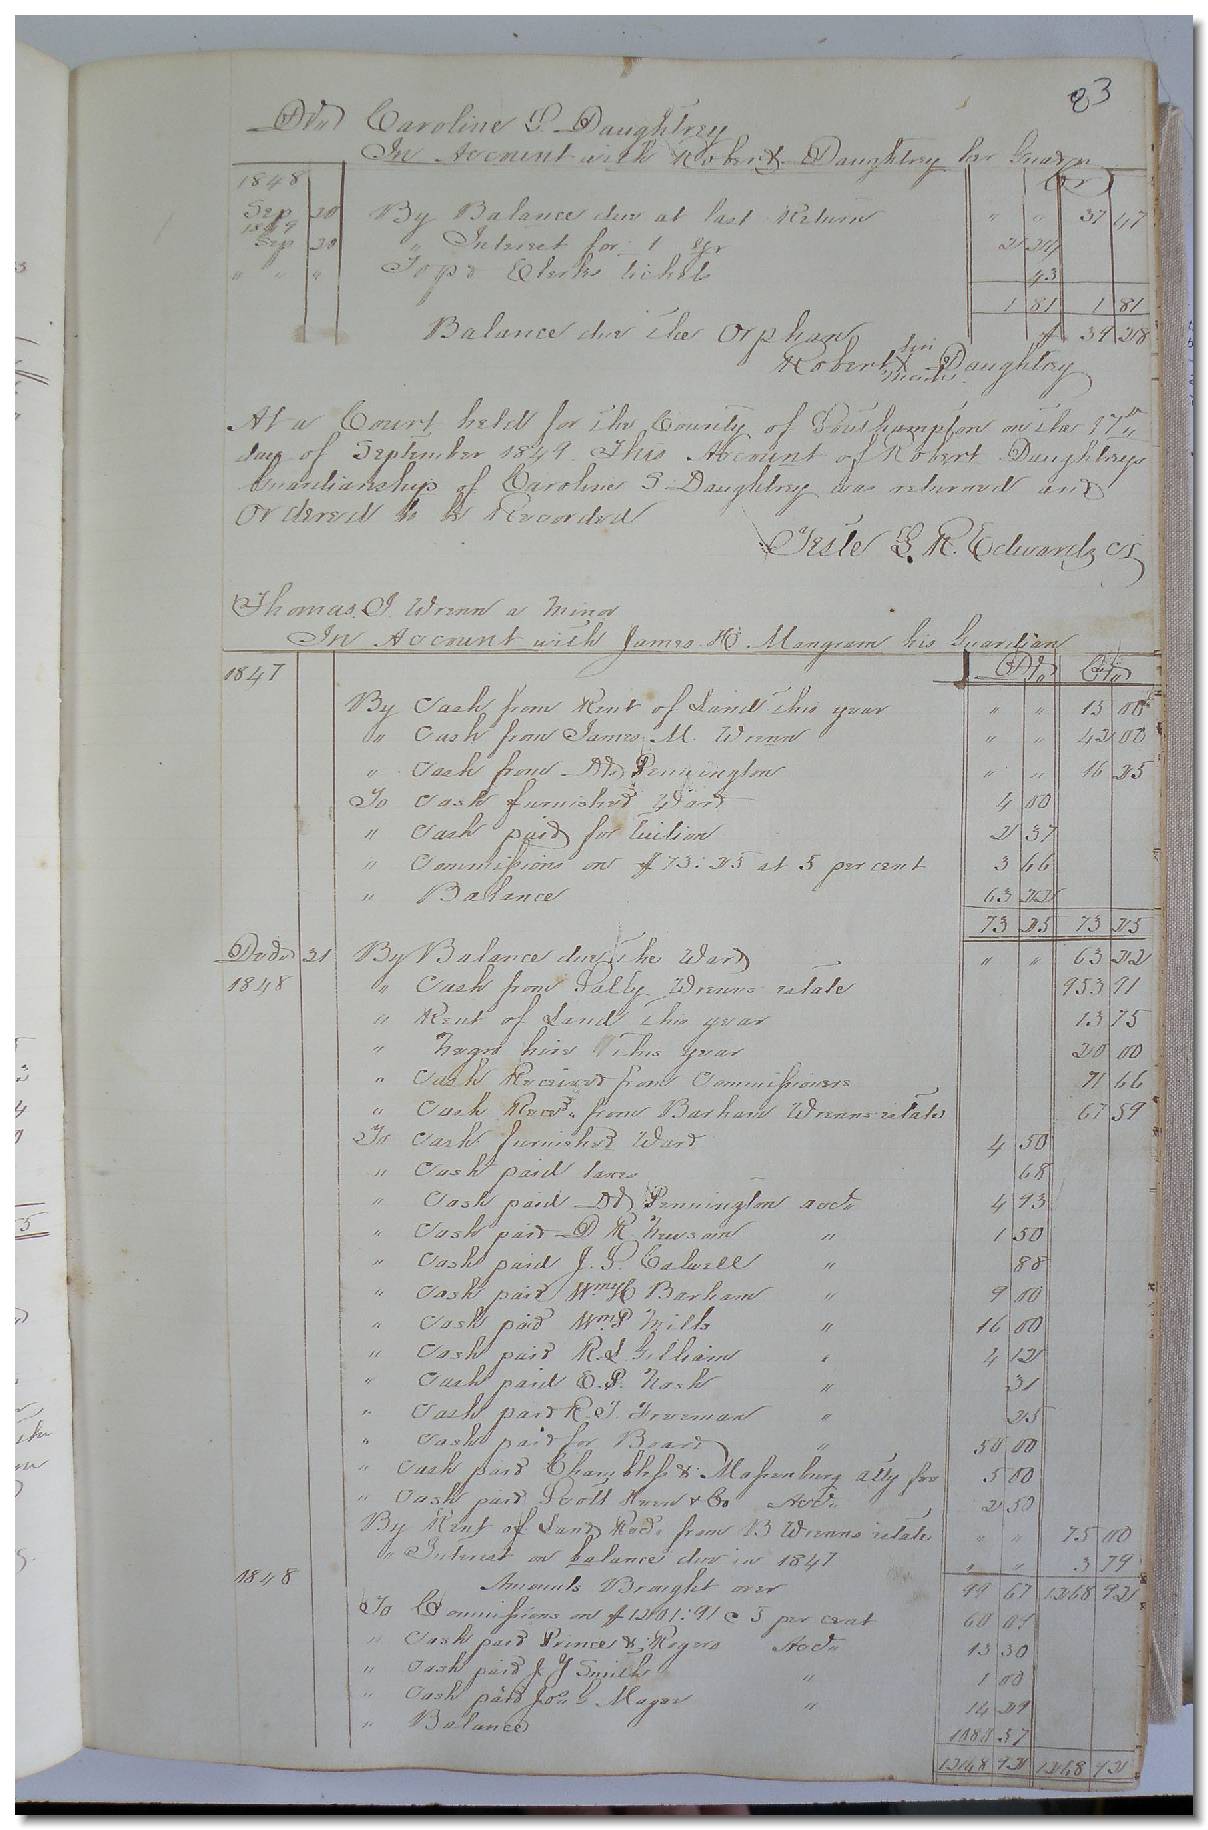 23
Dr Caroline S. Daughtrey
In Account with Robert Daughtrey her Guardn
Cr
1848
Sep 20 By Balance due at last Return " " 37 47
1849
Sep 20 " Interest for 1 yr 2 24
" " " To pd Clerks ticket 43
1 81 1 81
Balance due the Orphan $ 39 28
his
Robert X Daughtrey
mark
At a Court held for the County of Southampton on the 17th
day of September 1849. This Account of Robert Daughtreys
Guardianship of Caroline S Daughtrey was returned and
Ordered to be Recorded
Teste L. R. Edwards CS
Thomas J. Wrenn a minor
In Account with James H. Mangram his Guardian
1847 Dr Cr
By Cash from Rent of Land this year " " 15 00
" Cash from James M. Wrenn " " 42 00
" Cash from Pennington " " 16 25
To Cash furnished Ward 4 00
" Cash paid for tuition 2 37
" Commissions on $73:25 at 5 per cent 3 66
" Balance 63 22
73 25 73 25
31 By Balance due the Ward " " 63 22
1848 " Cash from Sally Wrenns estate 953 91
" Rent of Land this year 13 75
" Negro hire this year 20 00
" Cash Received from Commissioners 71 66
" Cash Recd. from Barham Wrenns estate 67 59
To Cash furnished Ward 4 50
" Cash paid taxes 68
" Cash paid Pennington acct 4 93
" Cash paid D R. Newsom " 1 50
" Cash paid J. S. Calwell " 88
" Cash paid Wm H Barham " 9 00
" Cash paid Wm P Mills " 16 00
" Cash paid R. S Gilliam " 4 12
" Cash paid E. P. Nash " 31
" Cash paid R. T. Freeman " 25
" Cash paid for Board " 50 00
" Cash paid Chambliss & Massenburg atty fee 5 00
" Cash paid Scott & Co Acct. 2 50
By Rent of Land Recd. from B Wrenns estate " " 75 00
" Interest on balance due in 1847 " " 3 79
1848 Amounts Brought over 99 67 1268 92
To Commissions on $1201:91 @ 5 per cent 60 09
" Cash paid Prince & Rogers Acct. 13 30
" Cash paid J. J Smith " 1 00
" Cash paid Magee " 14 29
" Balance 1080 57
1268 92 1268 92